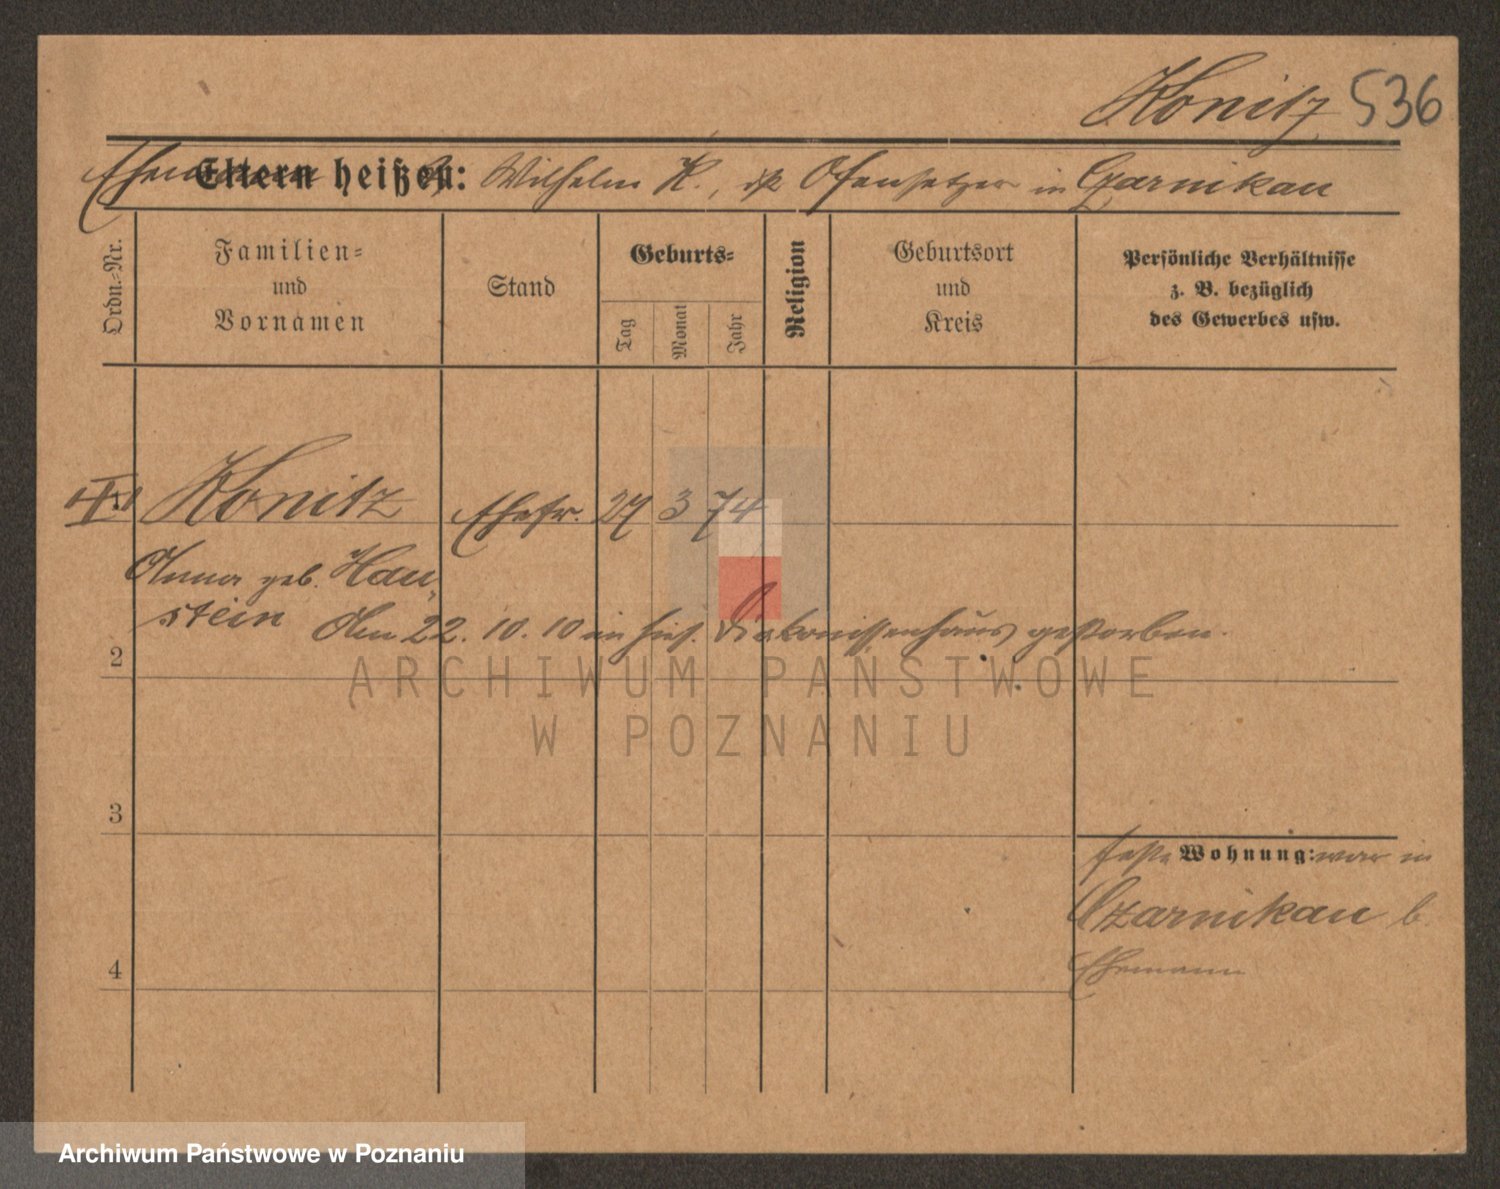 Konitz 536
Eltern heißen: Wilhelm K., ist Ofensetzer in Czarnikau
Ordn.-Nr.
Familien-
und
Vornamen
Stand
Geburts-
Tag
Monat
Jahr
Religion
Geburtsort
und
Kreis
Persönliche Verhältnisse
z. B. bezüglich
des Gewerbes usw.
Konitz Ehefr. 27 3 74
Anna geb. Hau-
stein Am 22. 10. 10 im hies. Diakonissenhaus gestorben.
2
3
4
feste Wohnung: war in
Czarnikau b.
Ehemann
ARCHIWUM PAŃSTWOWE
W POZNANIU
Archiwum Państwowe w Poznaniu